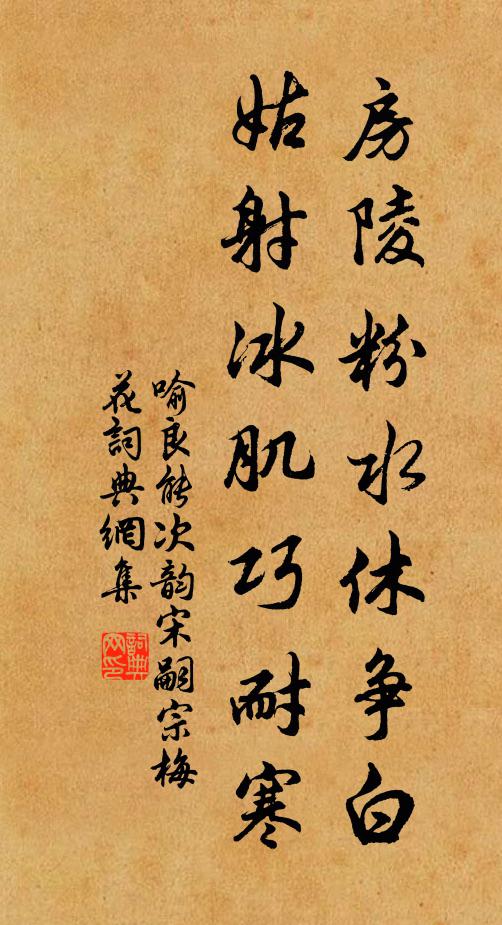 房陵粉水休争白
姑射冰肌巧耐寒
喻良能次韵宋嗣宗梅
花詞典網集
詞典
网印